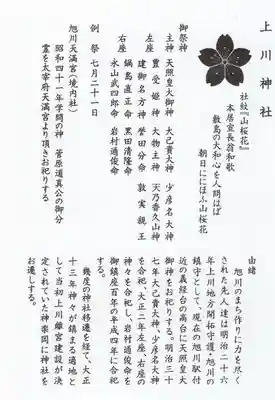 上川神社
社紋『山桜花』
本居宣長翁和歌
敷島の大和心を人問はば
朝日ににほふ山桜花
御祭神
主神 天照皇大御神 大己貴大神 少彦名大神
豊受姫神 大物主神 天乃香久山神
左座 建御名方神 誉田分命 敦実親王
右座 鍋島直正命 黒田清隆命
永山武四郎命 岩村通俊命
例祭 七月二十一日
旭川天満宮(境内社)
昭和四十一年学問の神 菅原道真公の御分
霊を太宰府天満宮より頂きお祀りする
由緒
旭川のまち作りに力を尽く
された先人達は明治二十六
年上川地方開拓守護・旭川の
鎮守として、現在の旭川駅付
近の義経台の高台に天照皇大
御神をお祀りする。明治三十
七年大己貴大神、少彦名大神
を合祀し、大正二年左座、右座の
神々を合祀し、岩村通俊命を
御鎮座百年の平成四年に合祀
する。
幾度の神社移遷を経て、大正
十三年神々が鎮まる適地と
して当初上川離宮建設が決
定されていた神楽岡に神社を
お遷しする。